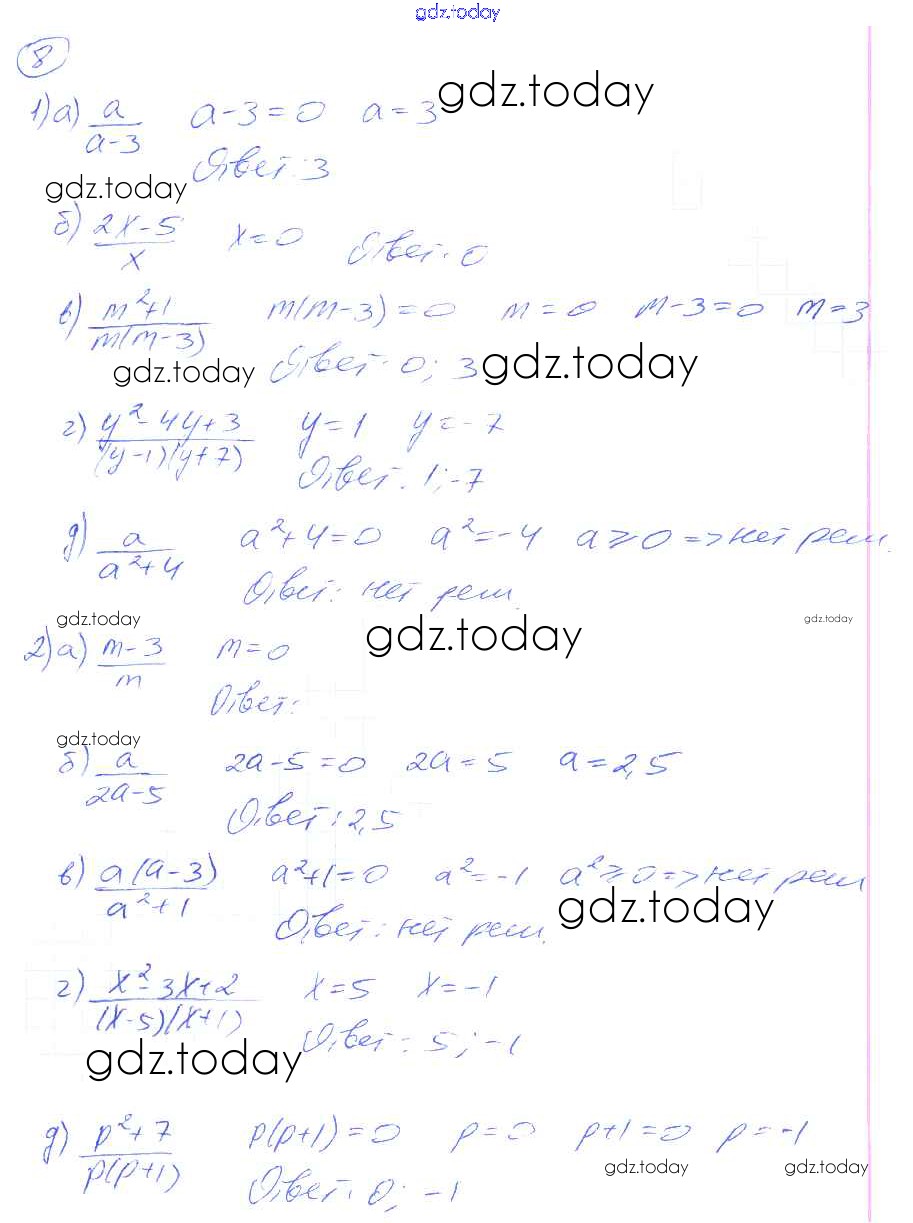 gdz.today
8
1) а) a/(a-3) a-3=0 a=3 gdz.today
Ответ: 3
gdz.today
б) (2x-5)/x x=0 Ответ: 0
в) (m²+1)/(m(m-3)) m(m-3)=0 m=0 m-3=0 m=3
gdz.today Ответ: 0; 3 gdz.today
г) (y²-4y+3)/((y-1)(y+7)) y=1 y=-7
Ответ: 1; -7
д) a/(a²+4) a²+4=0 a²=-4 a⩾0 => нет реш.
Ответ: нет реш.
gdz.today gdz.today gdz.today
2) а) (m-3)/m m=0
Ответ:
gdz.today
б) a/(2a-5) 2a-5=0 2a=5 a=2,5
Ответ: 2,5
в) a(a-3)/(a²+1) a²+1=0 a²=-1 a²⩾0 => нет реш
gdz.today
Ответ: нет реш.
г) (x²-3x+2)/((x-5)(x+1)) x=5 x=-1
Ответ: 5; -1
gdz.today
д) (p²+7)/(p(p+1)) p(p+1)=0 p=0 p+1=0 p=-1
gdz.today gdz.today
Ответ: 0; -1